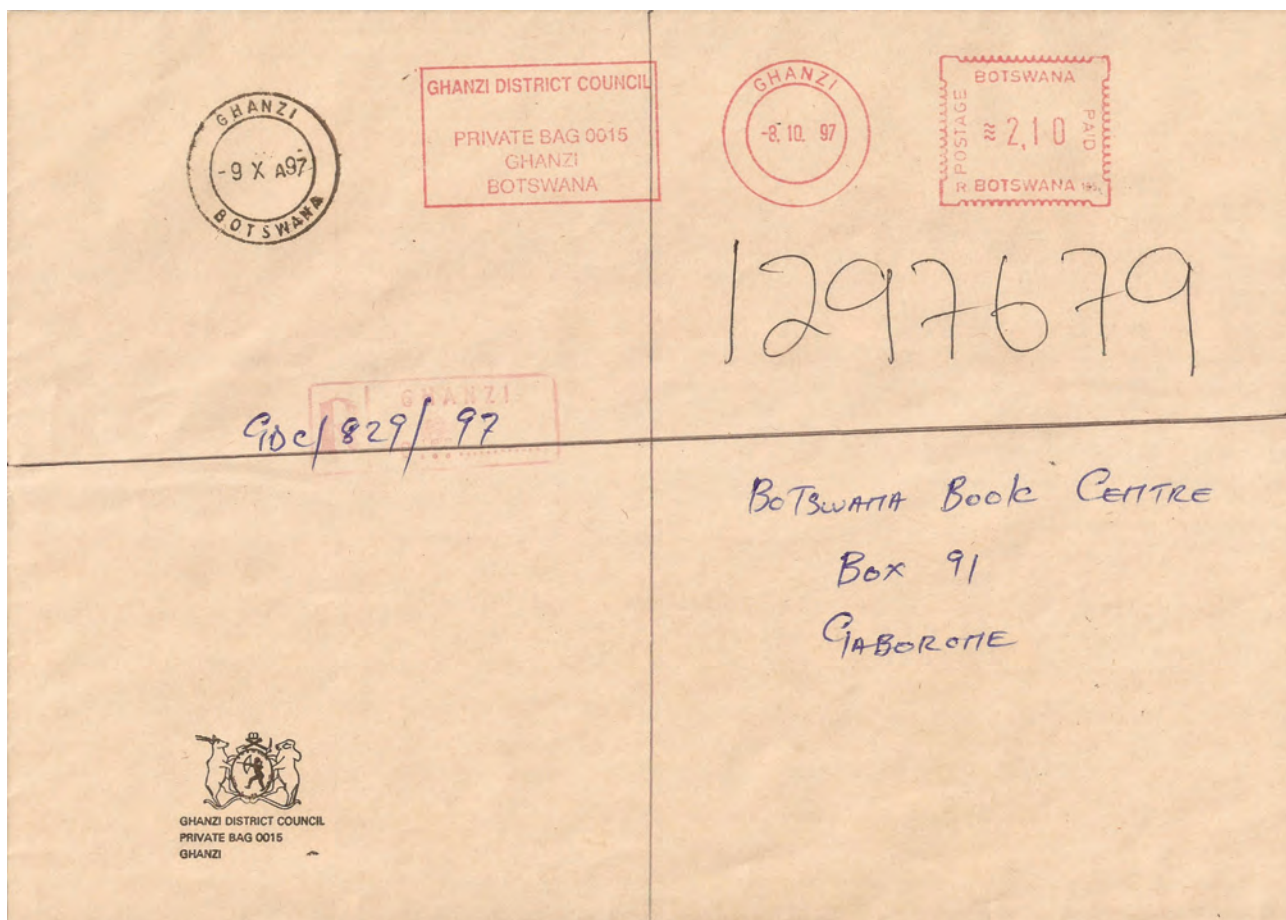 GHANZI
-9 X A97
BOTSWANA
GHANZI DISTRICT COUNCIL
PRIVATE BAG 0015
GHANZI
BOTSWANA
GHANZI
-8. 10. 97
BOTSWANA
POSTAGE
2,10
PAID
R. BOTSWANA
1297679
GHANZI
R
GDC/829/97
BOTSWANA BOOK CENTRE
BOX 91
GABORONE
GHANZI DISTRICT COUNCIL
PRIVATE BAG 0015
GHANZI